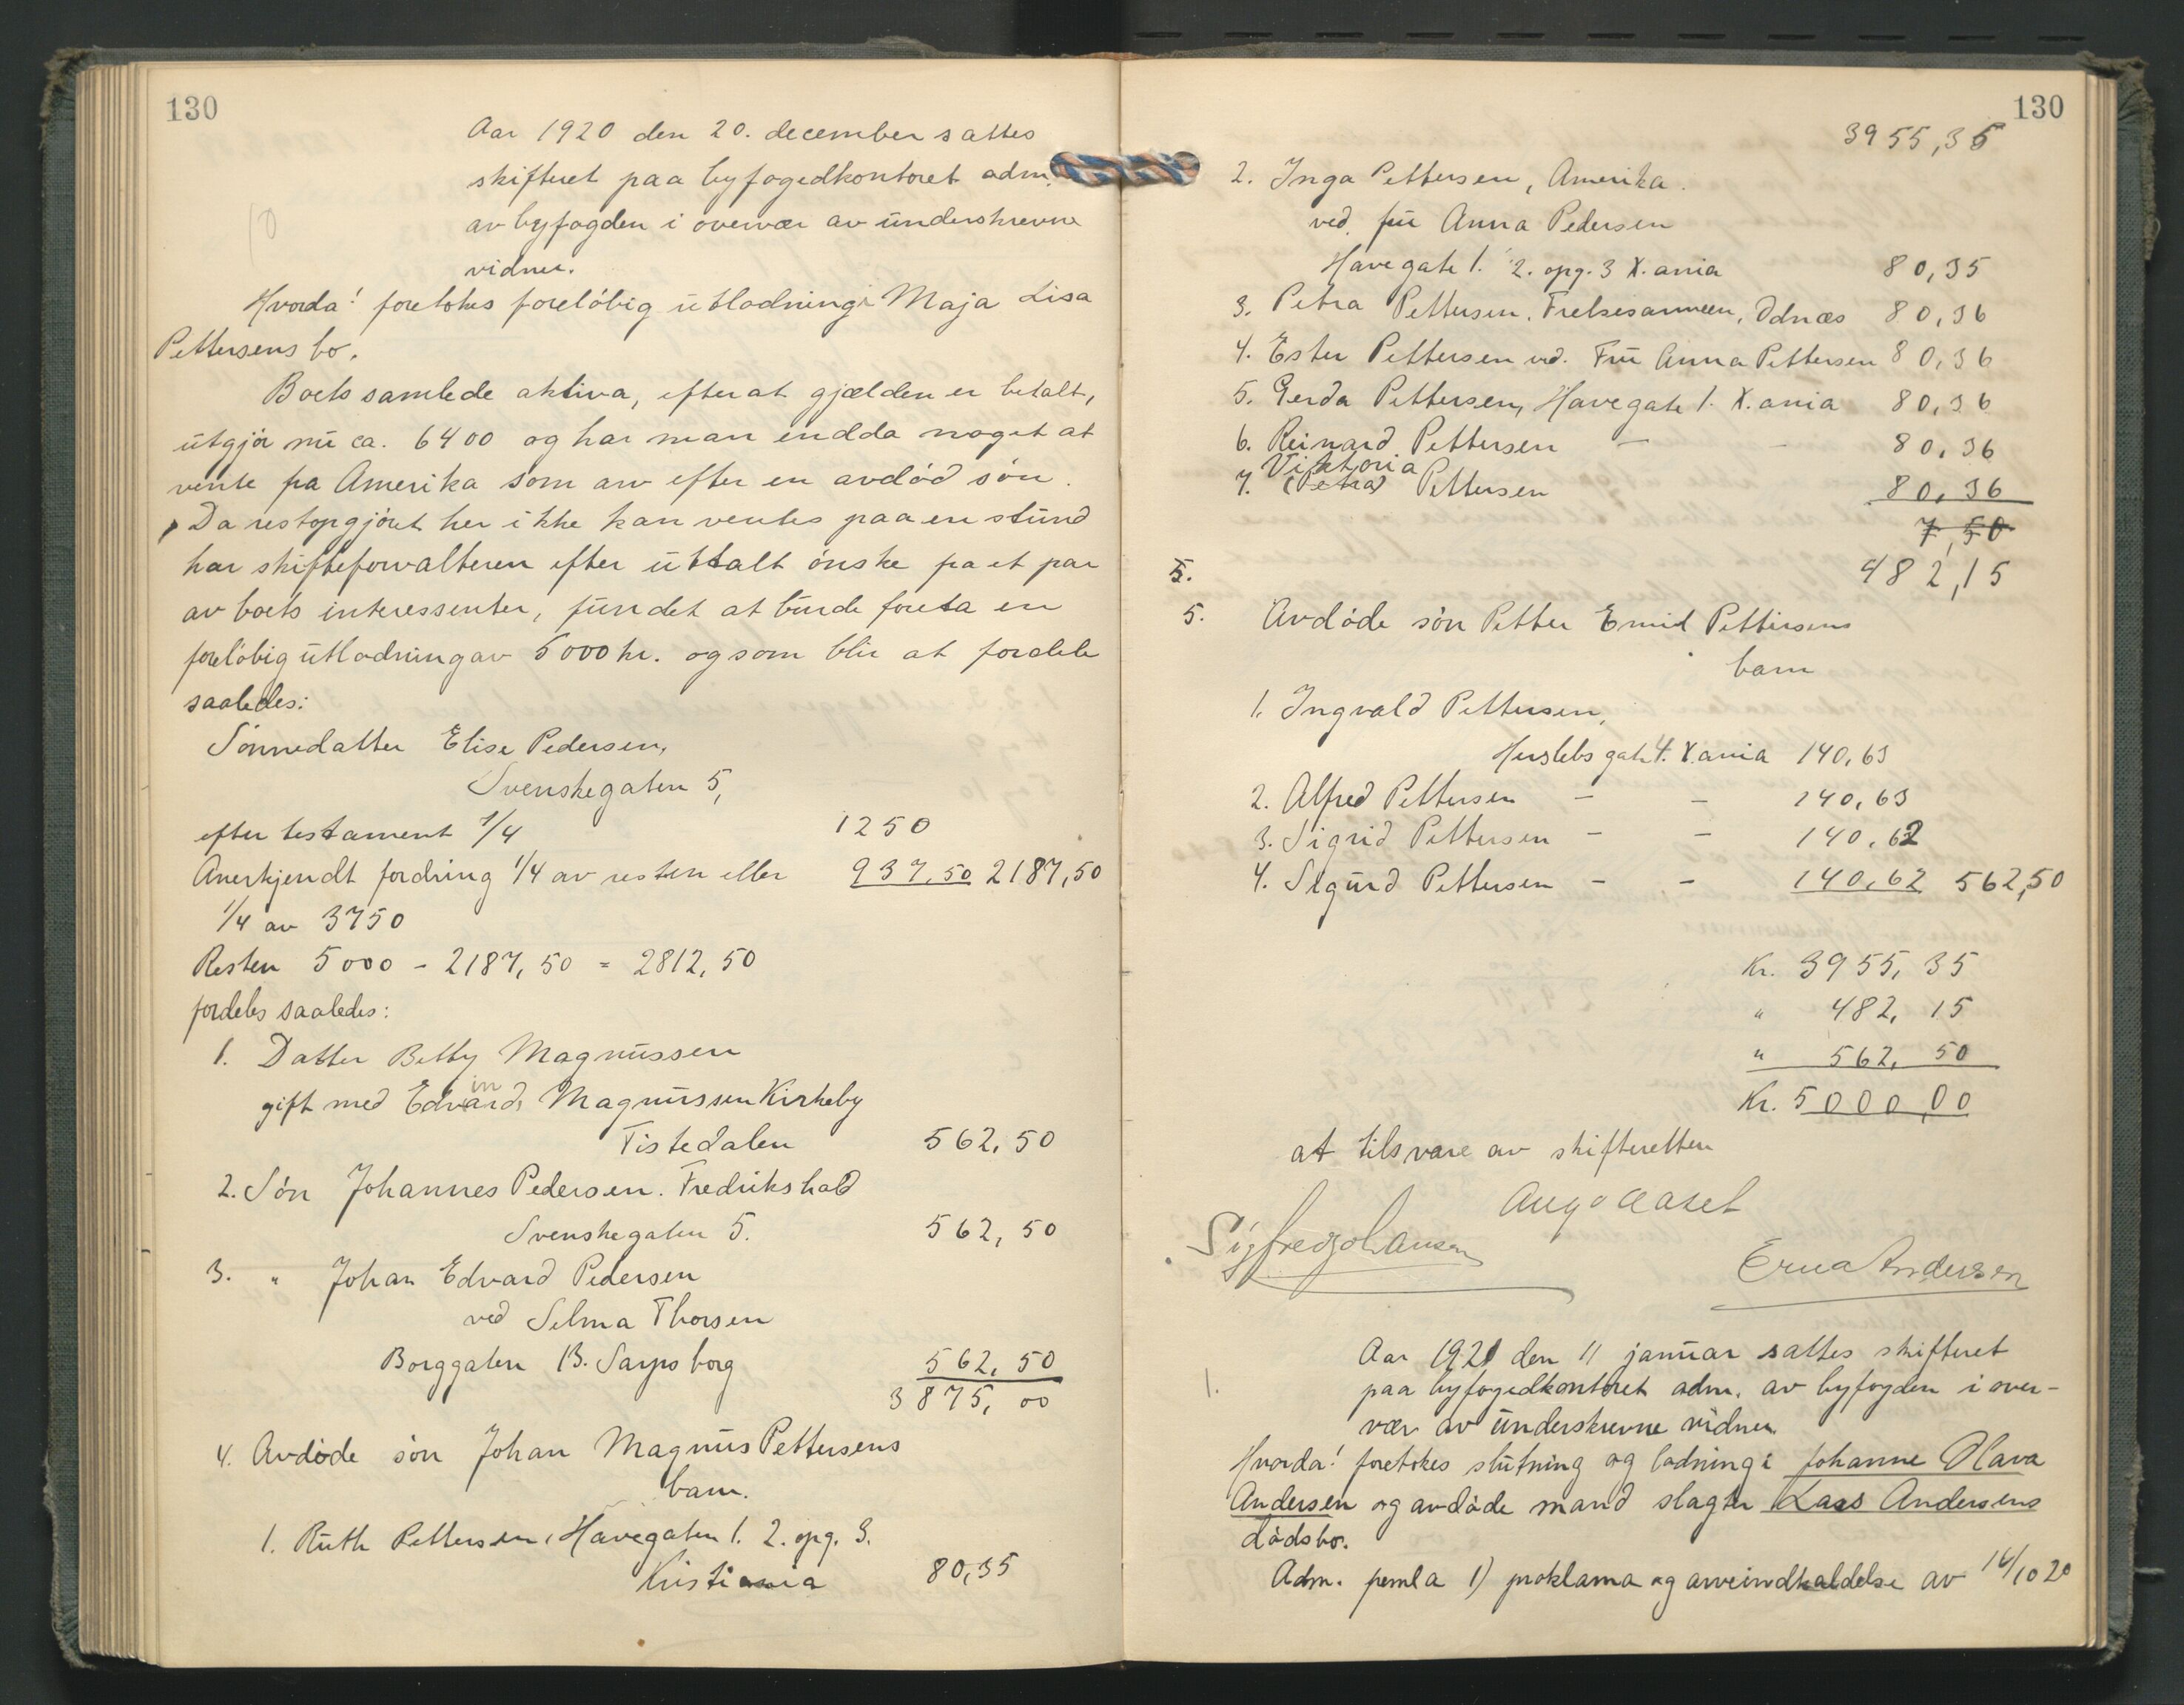 130
Aar 1920 den 20. december sattes
skifteret paa byfogedkontoret adm.
av byfogden i overvær av underskrevne
vidner.
Hvorda! foretokes foreløbig utlodning i Maja Lisa
Pettersens bo.
Boets samlede aktiva, efterat gjælden er betalt,
utgjør nu ca. 6400 og har man endda noget at
vente fra Amerika som arv efter en avdød søn.
Da restopgjøret her ikke kan ventes paa en stund
har skifteforvalteren efter uttalt ønske fra et par
av boets interessenter, fundet at burde foreta en
foreløbig utlodning av 5000 kr. og som blir at fordele
saaledes:
Sønnedatter Elise Pedersen,
Svenskegaten 5,
efter testament 1/4 1250
Anerkjendt fordring 1/4 av resten eller 937,50 2187,50
1/4 av 3750
Resten 5000 - 2187,50 = 2812,50
fordeles saaledes:
1. Datter Betty Magnussen
gift med Edvin Magnussen Kirkeby
Tistedalen 562,50
2. Søn Johannes Pedersen. Fredrikshald
Svenskegaten 5. 562,50
3. " Johan Edvard Pedersen
ved Selma Thorsen
Borggaten 13. Sarpsborg 562,50
3875,00
4. Avdøde søn Johan Magnus Pettersens
barn.
1. Ruth Pettersen, Havegaten 1. 2. opg. 3.
Kristiania 80,35
130
3955,35
2. Inga Pettersen, Amerika.
ved. fru Anna Pedersen
Havegate 1. 2. opg. 3 X.ania 80,35
3. Petra Pettersen. Frelsesarmeen, Odnæs 80,36
4. Ester Pettersen ved. Fru Anna Pettersen 80,36
5. Gerda Pettersen, Havegate 1. X.ania 80,36
6. Reinard Pettersen — - 80,36
Viktoria
7. (Petra) Pettersen 80,36
7,50
5. 482,15
5. Avdøde søn Petter Emil Pettersens
barn
1. Ingvald Pettersen,
Herslebs gate 4. X.ania 140,63
2. Alfred Pettersen - - 140,63
3. Sigrid Pettersen - - 140,62
4. Sigurd Pettersen - - 140,62 562,50
Kr. 3955,35
" 482,15
" 562,50
Kr. 5000,00
at tilsvare av skifteretten
Aug. Aaset
Sigfred Johansen
Erna Andersen
Aar 1921 den 11 januar sattes skifteret
1.
paa byfogedkontoret adm. av byfogden i over-
vær av underskrevne vidner.
Hvorda! foretokes slutning og lodning i Johanne Olava
Andersen og avdøde mand slagter Lars Andersens
dødsbo.
Adm. freml a 1) proklama og arveindkaldelse av 14/10 20